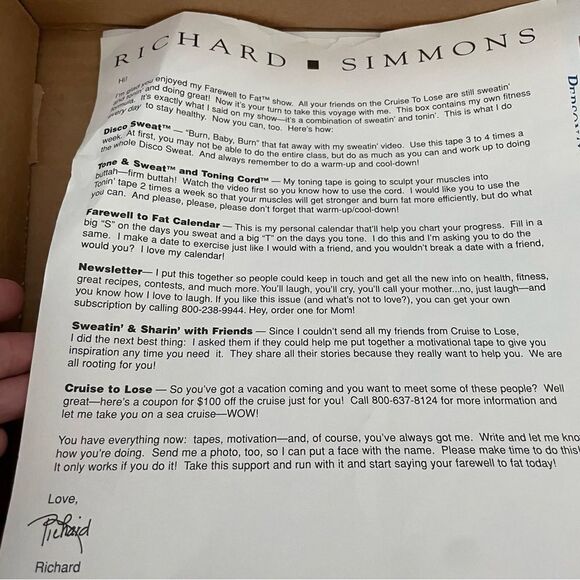 RICHARD ■ SIMMONS
Hi!
I'm glad you enjoyed my Farewell to Fat™ show. All your friends on the Cruise To Lose are still sweatin'
and tonin' and doing great! Now it's your turn to take this voyage with me. This box contains my own fitness
formula. It's exactly what I said on my show—it's a combination of sweatin' and tonin'. This is what I do
every day to stay healthy. Now you can, too. Here's how:
Disco Sweat™ — "Burn, Baby, Burn" that fat away with my sweatin' video. Use this tape 3 to 4 times a
week. At first, you may not be able to do the entire class, but do as much as you can and work up to doing
the whole Disco Sweat. And always remember to do a warm-up and cool-down!
Tone & Sweat™ and Toning Cord™ — My toning tape is going to sculpt your muscles into
buttah—firm buttah! Watch the video first so you know how to use the cord. I would like you to use the
Tonin' tape 2 times a week so that your muscles will get stronger and burn fat more efficiently, but do what
you can. And please, please, please don't forget that warm-up/cool-down!
Farewell to Fat Calendar — This is my personal calendar that'll help you chart your progress. Fill in a
big "S" on the days you sweat and a big "T" on the days you tone. I do this and I'm asking you to do the
same. I make a date to exercise just like I would with a friend, and you wouldn't break a date with a friend,
would you? I love my calendar!
Newsletter— I put this together so people could keep in touch and get all the new info on health, fitness,
great recipes, contests, and much more. You'll laugh, you'll cry, you'll call your mother...no, just laugh—and
you know how I love to laugh. If you like this issue (and what's not to love?), you can get your own
subscription by calling 800-238-9944. Hey, order one for Mom!
Sweatin' & Sharin' with Friends — Since I couldn't send all my friends from Cruise to Lose,
I did the next best thing: I asked them if they could help me put together a motivational tape to give you
inspiration any time you need it. They share all their stories because they really want to help you. We are
all rooting for you!
Cruise to Lose — So you've got a vacation coming and you want to meet some of these people? Well
great—here's a coupon for $100 off the cruise just for you! Call 800-637-8124 for more information and
let me take you on a sea cruise—WOW!
You have everything now: tapes, motivation—and, of course, you've always got me. Write and let me kno
how you're doing. Send me a photo, too, so I can put a face with the name. Please make time to do this!
It only works if you do it! Take this support and run with it and start saying your farewell to fat today!
Love,
Richard
Richard